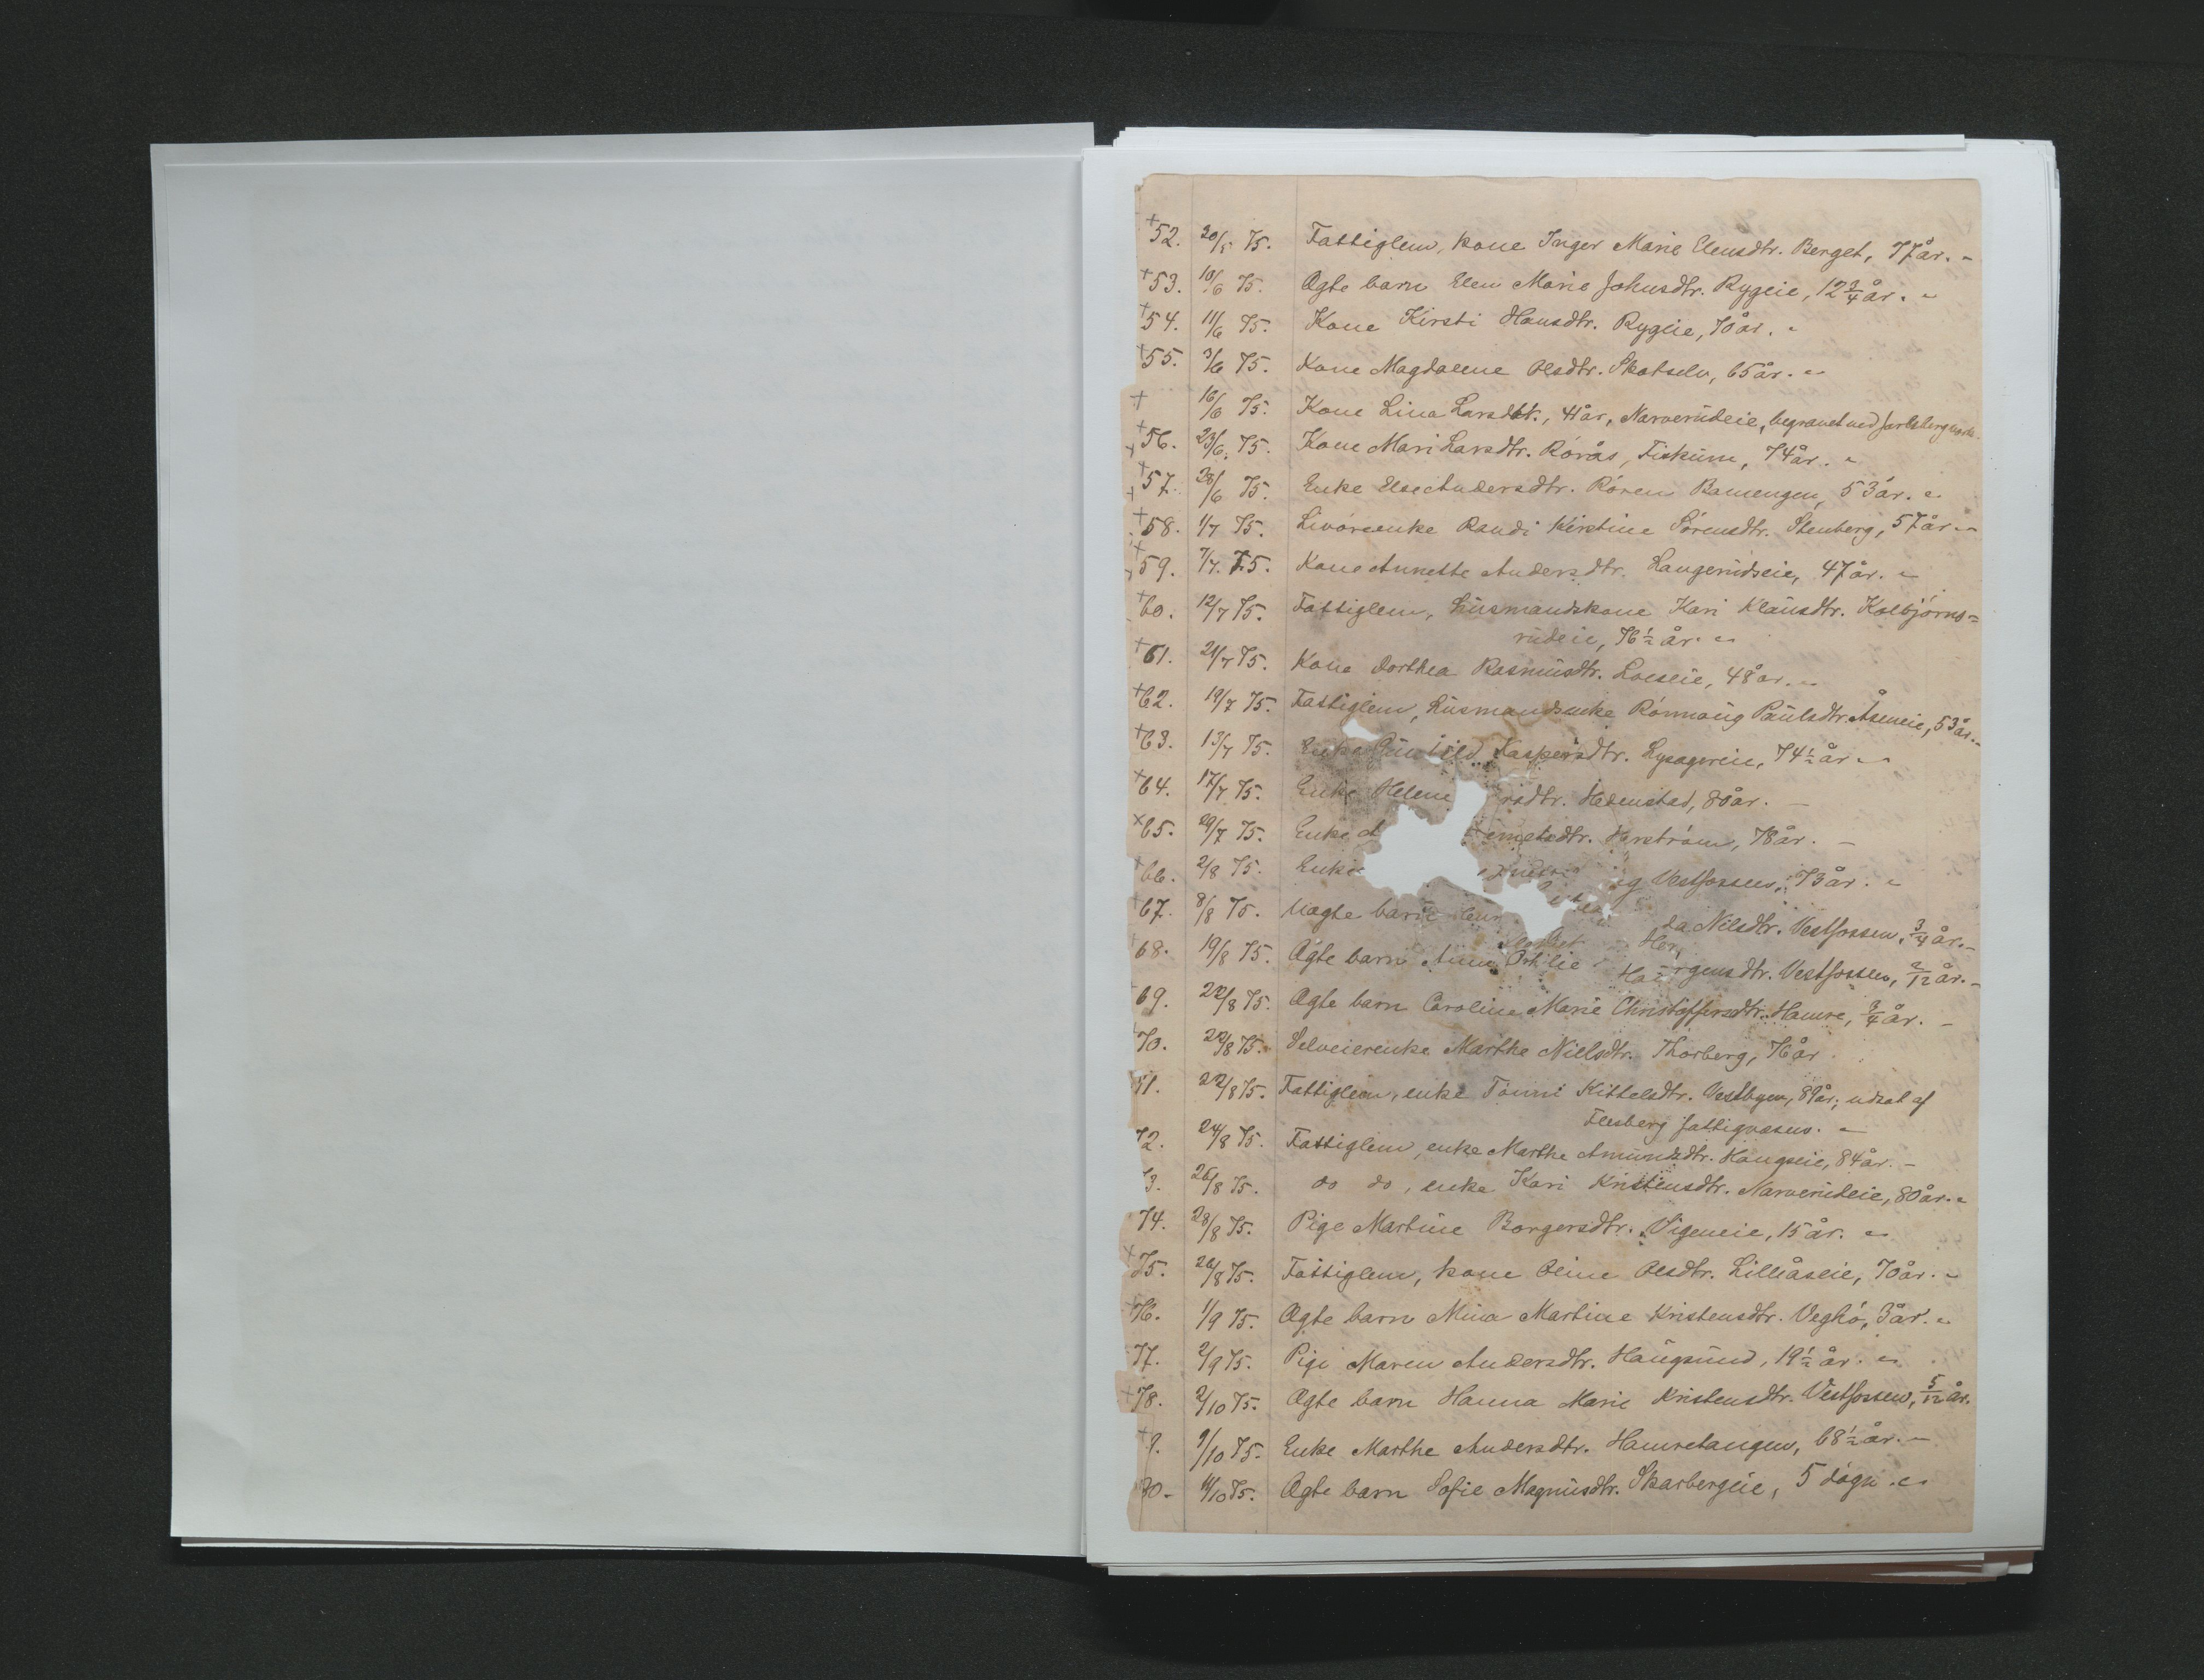 +52. 20/5 75. Fattiglem, kone Inger Marie Elensdtr. Berget, 77 år. -
+53. 10/6 75. Ægte barn Elen Marie Johnsdtr. Rygeie, 12 3/4 år. -
+54. 11/6 75. Kone Kirsti Hansdtr. Rygeie, 70 år. -
+55. 3/6 75. Kone Magdalene Olsdtr. Skotselv, 65 år. -
+ 16/6 75. Kone Lina Larsdtr., 41 år, Narverudeie, begravet ved Jarlsberg
+56. 23/6. 75. Kone Mari Larsdtr. Rörås, Fiskum, 74 år. -
+57. 28/6 75. Enke Else Andersdtr. Rören 53 år. -
+58. 1/7 75. Livöreenke Randi Kirstine Sörensdtr. Stenberg, 57 år -
+59. 7/7. 75. Kone Annette Andersdtr. Langerudseie, 47 år. -
+60. 12/7 75. Fattiglem, husmandskone Kari Klausdtr. Kolbjörns=
rudeie, 76 1/2 år. -
+61. 21/7 75. Kone Dorthea Rasmusdtr. Loeseie, 48 år. -
+62. 19/7 75. Fattiglem, husmandsenke Rönnoug Paulsdtr. Åseneie, 53 år. -
+63. 13/7 75. Enke Kaspersdtr. Lysagereie, 74 1/2 år -
+64. 17/7 75. Enke Helene Hedenstad, 80 år. -
+65. 29/7 75. Enke 78 år. -
+66. 2/8 75. Enke Vestfossen, 73 år. -
+67. 8/8 75. Uægte barn Nilsdtr. Vestfossen, 3/4 år. -
+68. 19/8 75. Ægte barn Anna Othilie Vestfossen, 2/12 år. -
+69. 22/8 75. Ægte barn Caroline Marie Christoffersdtr. Hamre, 3/4 år. -
+70. 22/8 75. Selveierenke Marthe Nielsdtr. Thorberg, 76 år
71. 22/8 75. Fattiglem, enke Tonni Kittelsdtr. Vestbyen, 89 år; udsat af
Flesberg fattigvæsen. -
72. 24/8 75. Fattiglem, enke Marthe Amundsdtr. Hougseie, 84 år. -
3. 26/8 75. do do, enke Kari Kristensdtr. Narverudeie, 80 år. -
74. 28/8 75. Pige Martine Borgersdtr. Vigeneie, 15 år. -
+75. 26/8 75. Fattiglem, kone Oline Olsdtr. Lilleåseie, 70 år. -
+76. 1/9 75. Ægte barn Mina Martine Kristensdtr. Veghö, 3 år. -
77. 2/9 75. Pige Maren Andersdtr. Haugsund, 19 1/2 år. -
+78. 2/10 75. Ægte barn Hanna Marie Kristensdtr. Vestfossen, 5/12 år.
+9. 9/10 75. Enke Marthe Andersdtr. Hamretangen, 68 1/2 år. -
80. 11/10 75. Ægte barn Sofie Magnusdtr. Skarbergeie, 5 dögn. -